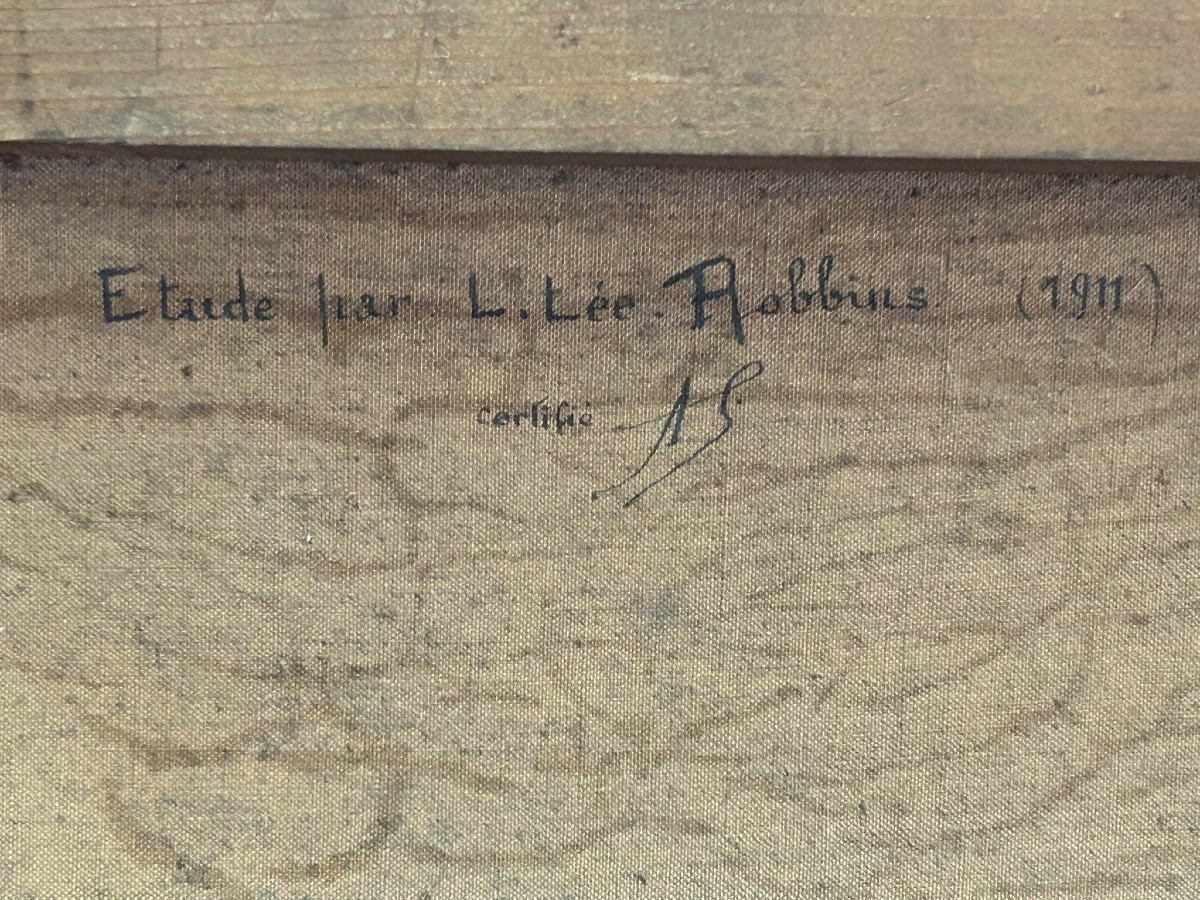 Etude par L. Lée. Robbins (1911)
certifié